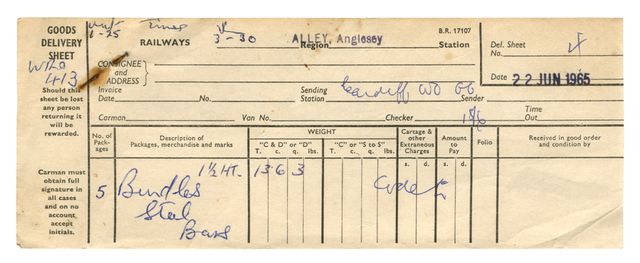 GOODS
DELIVERY
SHEET
Should this
sheet be lost
any person
returning it
will be
rewarded.
Carman must
obtain full
signature in
all cases
and on no
account
accept
initials.
1-25
Times
3-30
B.R. 17107
RAILWAYS
Region
ALLEY, Anglesey
Station
Del. Sheet
No.
4
413
CONSIGNEE
and
ADDRESS
Date 22 JUN 1965
Invoice
Date
No.
Sending
Station
Cardiff
Sender
Carman
Van No.
Checker
Time
Out
No. of
Pack-
ages
Description of
Packages, merchandise and marks
WEIGHT
"C & D" or "D"
T. c. q. lbs.
"C" or "S to S"
T. c. q. lbs.
Cartage &
other
Extraneous
Charges
s. d.
Amount
to
Pay
s. d.
Folio
Received in good order
and condition by
1½ HT. 13 6 3
5 Bundles
Steel
Bars